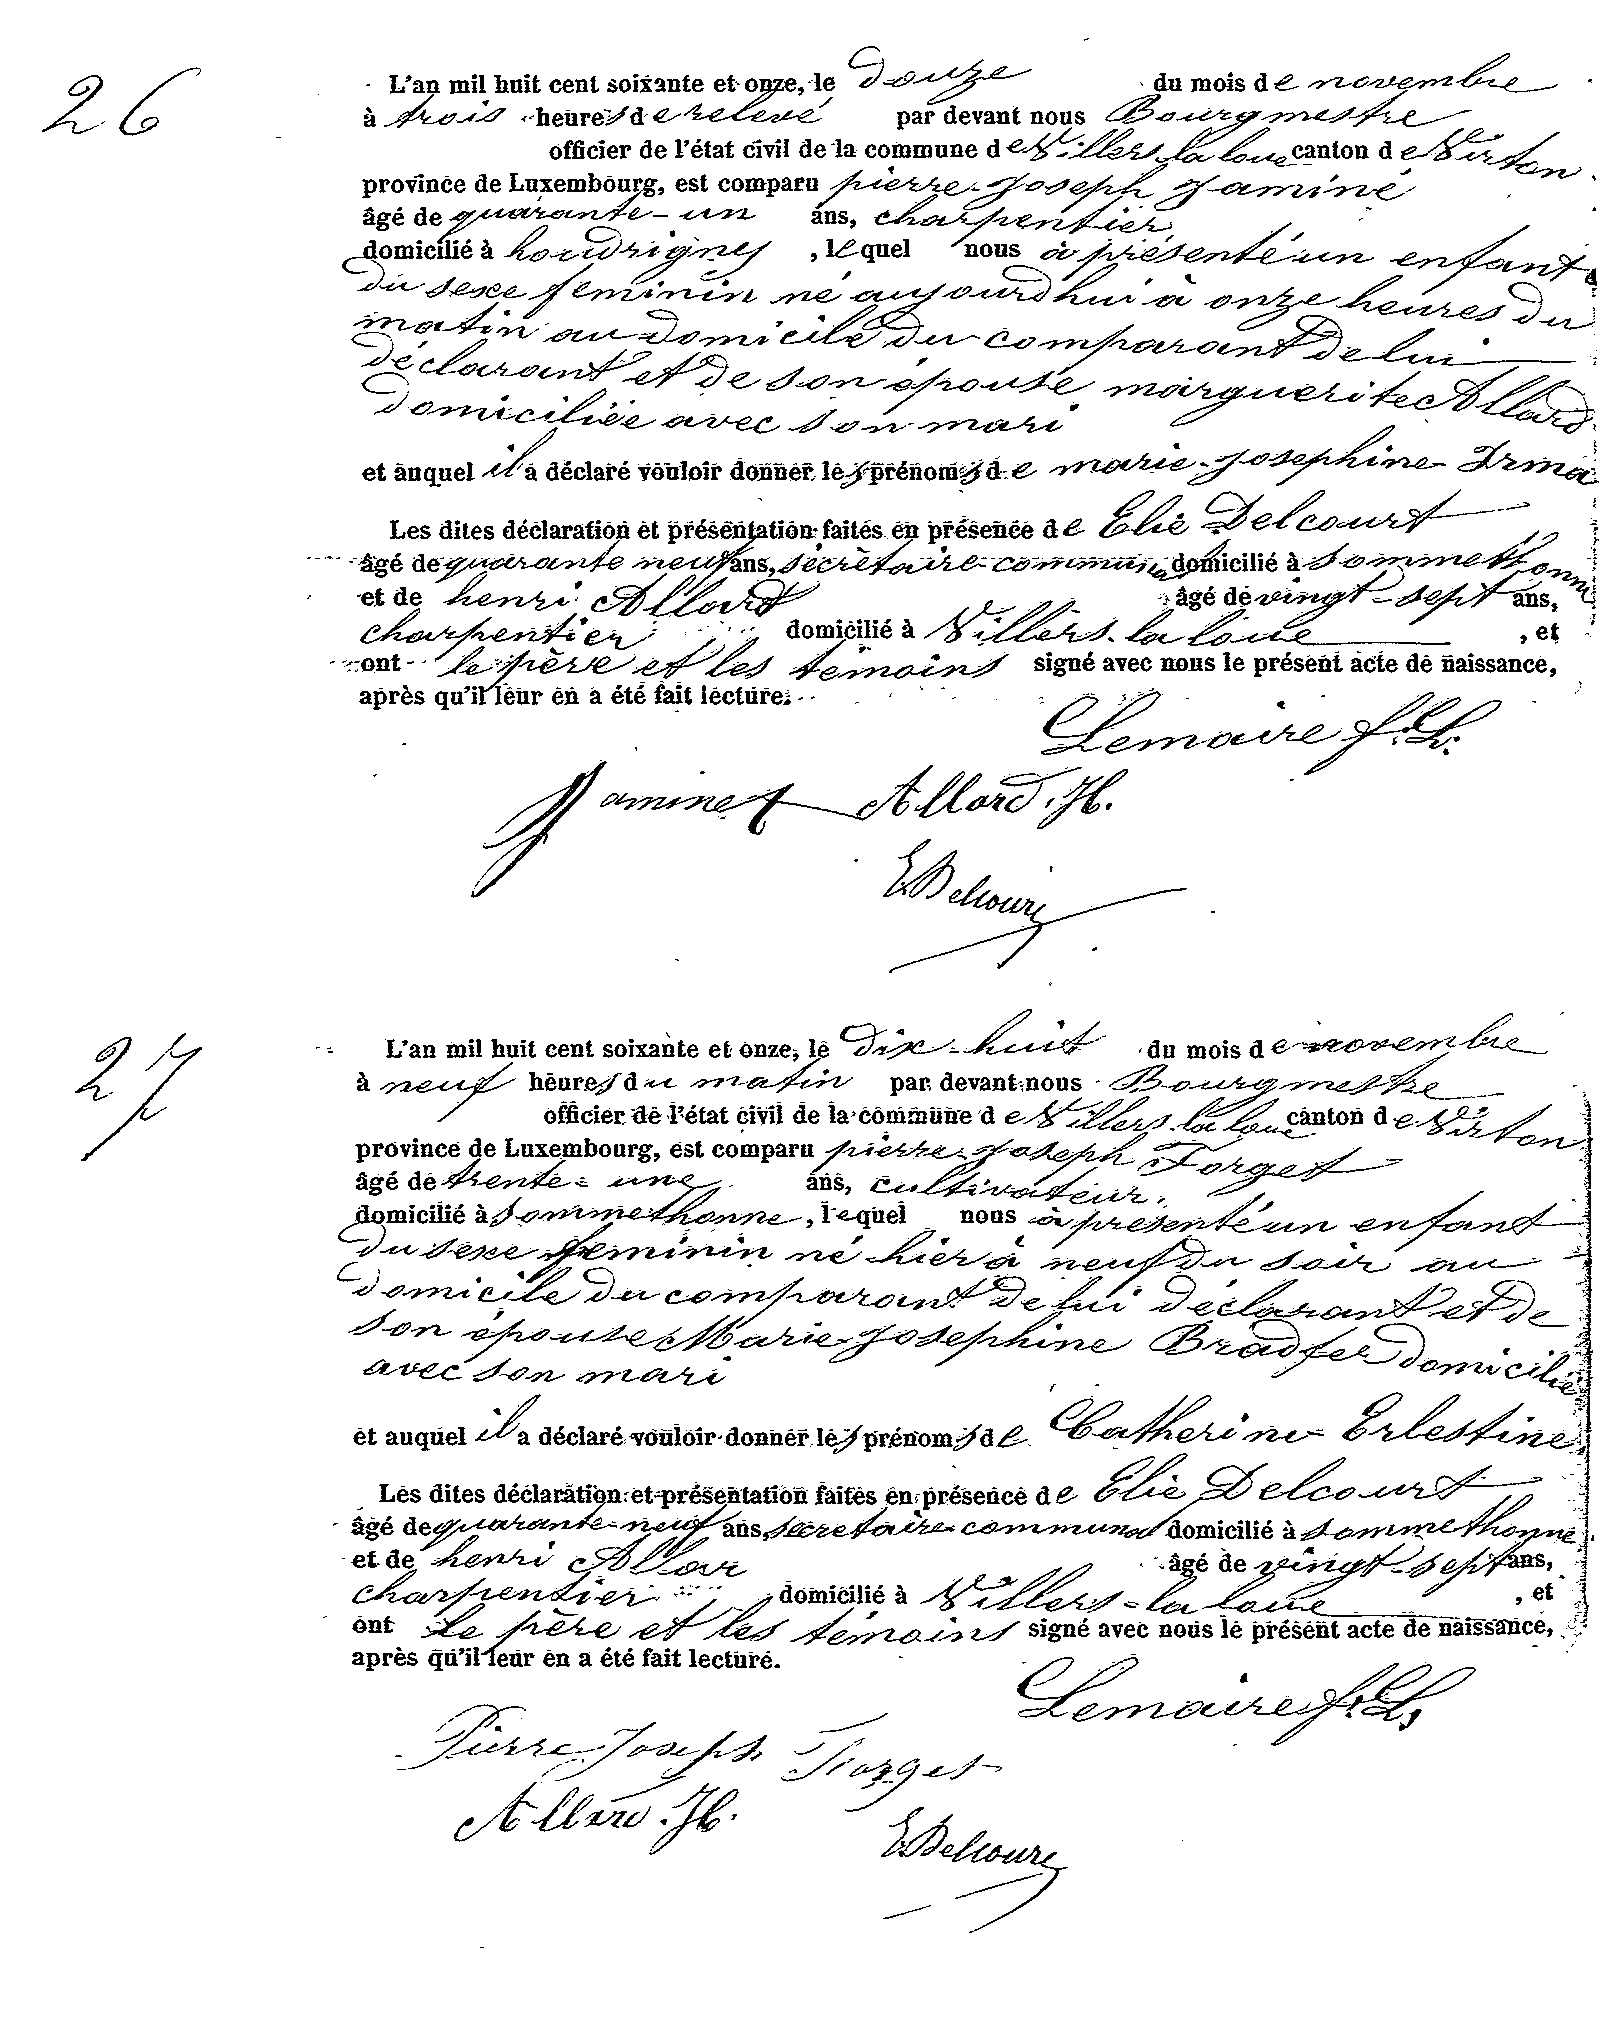 26
L'an mil huit cent soixante et onze, le douze du mois de novembre
à trois heures de relevé par devant nous Bourgmestre
officier de l'état civil de la commune de Villers la loue canton de Virton
province de Luxembourg, est comparu pierre-Joseph Jaminé
âgé de quarante-un ans, charpentier,
domicilié à houdrigny , lequel nous à présenté un enfant
du sexe feminin né aujourdhui à onze heures du
matin au domicile du comparant de lui
déclarant et de son épouse marguerite Allard
domiciliée avec son mari
et auquel il a déclaré vouloir donner les prénoms de marie-Josephine Irma
Les dites déclaration et présentation faites en présence de Elie Delcourt
âgé de quarante neuf ans, secrétaire communal domicilié à Sommethonne
et de henri Allard âgé de vingt-sept ans,
charpentier domicilié à Villers-la loue , et
ont le père et les témoins signé avec nous le présent acte de naissance,
après qu'il leur en a été fait lecture.
Lemaire f.L.
Jaminet Allard.H.
E Delcourt
27
L'an mil huit cent soixante et onze, le dix-huit du mois de novembre
à neuf heures du matin par devant nous Bourgmestre
officier de l'état civil de la commune de Villers la loue canton de Virton
province de Luxembourg, est comparu pierre-Joseph Forget
âgé de trente-une ans, cultivateur,
domicilié à Sommethonne , lequel nous à présenté un enfant
du sexe feminin né hier à neuf du soir au
domicile du comparant de lui déclarant et de
son épouse Marie-Josephine Bradfer domicilié
avec son mari
et auquel il a déclaré vouloir donner les prénoms de Catherine Erlestine
Les dites déclaration et présentation faites en présence de Elie Delcourt
âgé de quarante-neuf ans, secretaire communal domicilié à Sommethonne
et de henri Allar âgé de vingt-sept ans,
charpentier domicilié à Villers-la loue , et
ont le père et les témoins signé avec nous le présent acte de naissance,
après qu'il leur en a été fait lecture.
Lemaire f.L.
Pierre Joseph Forget
Allard.H.
E Delcourt